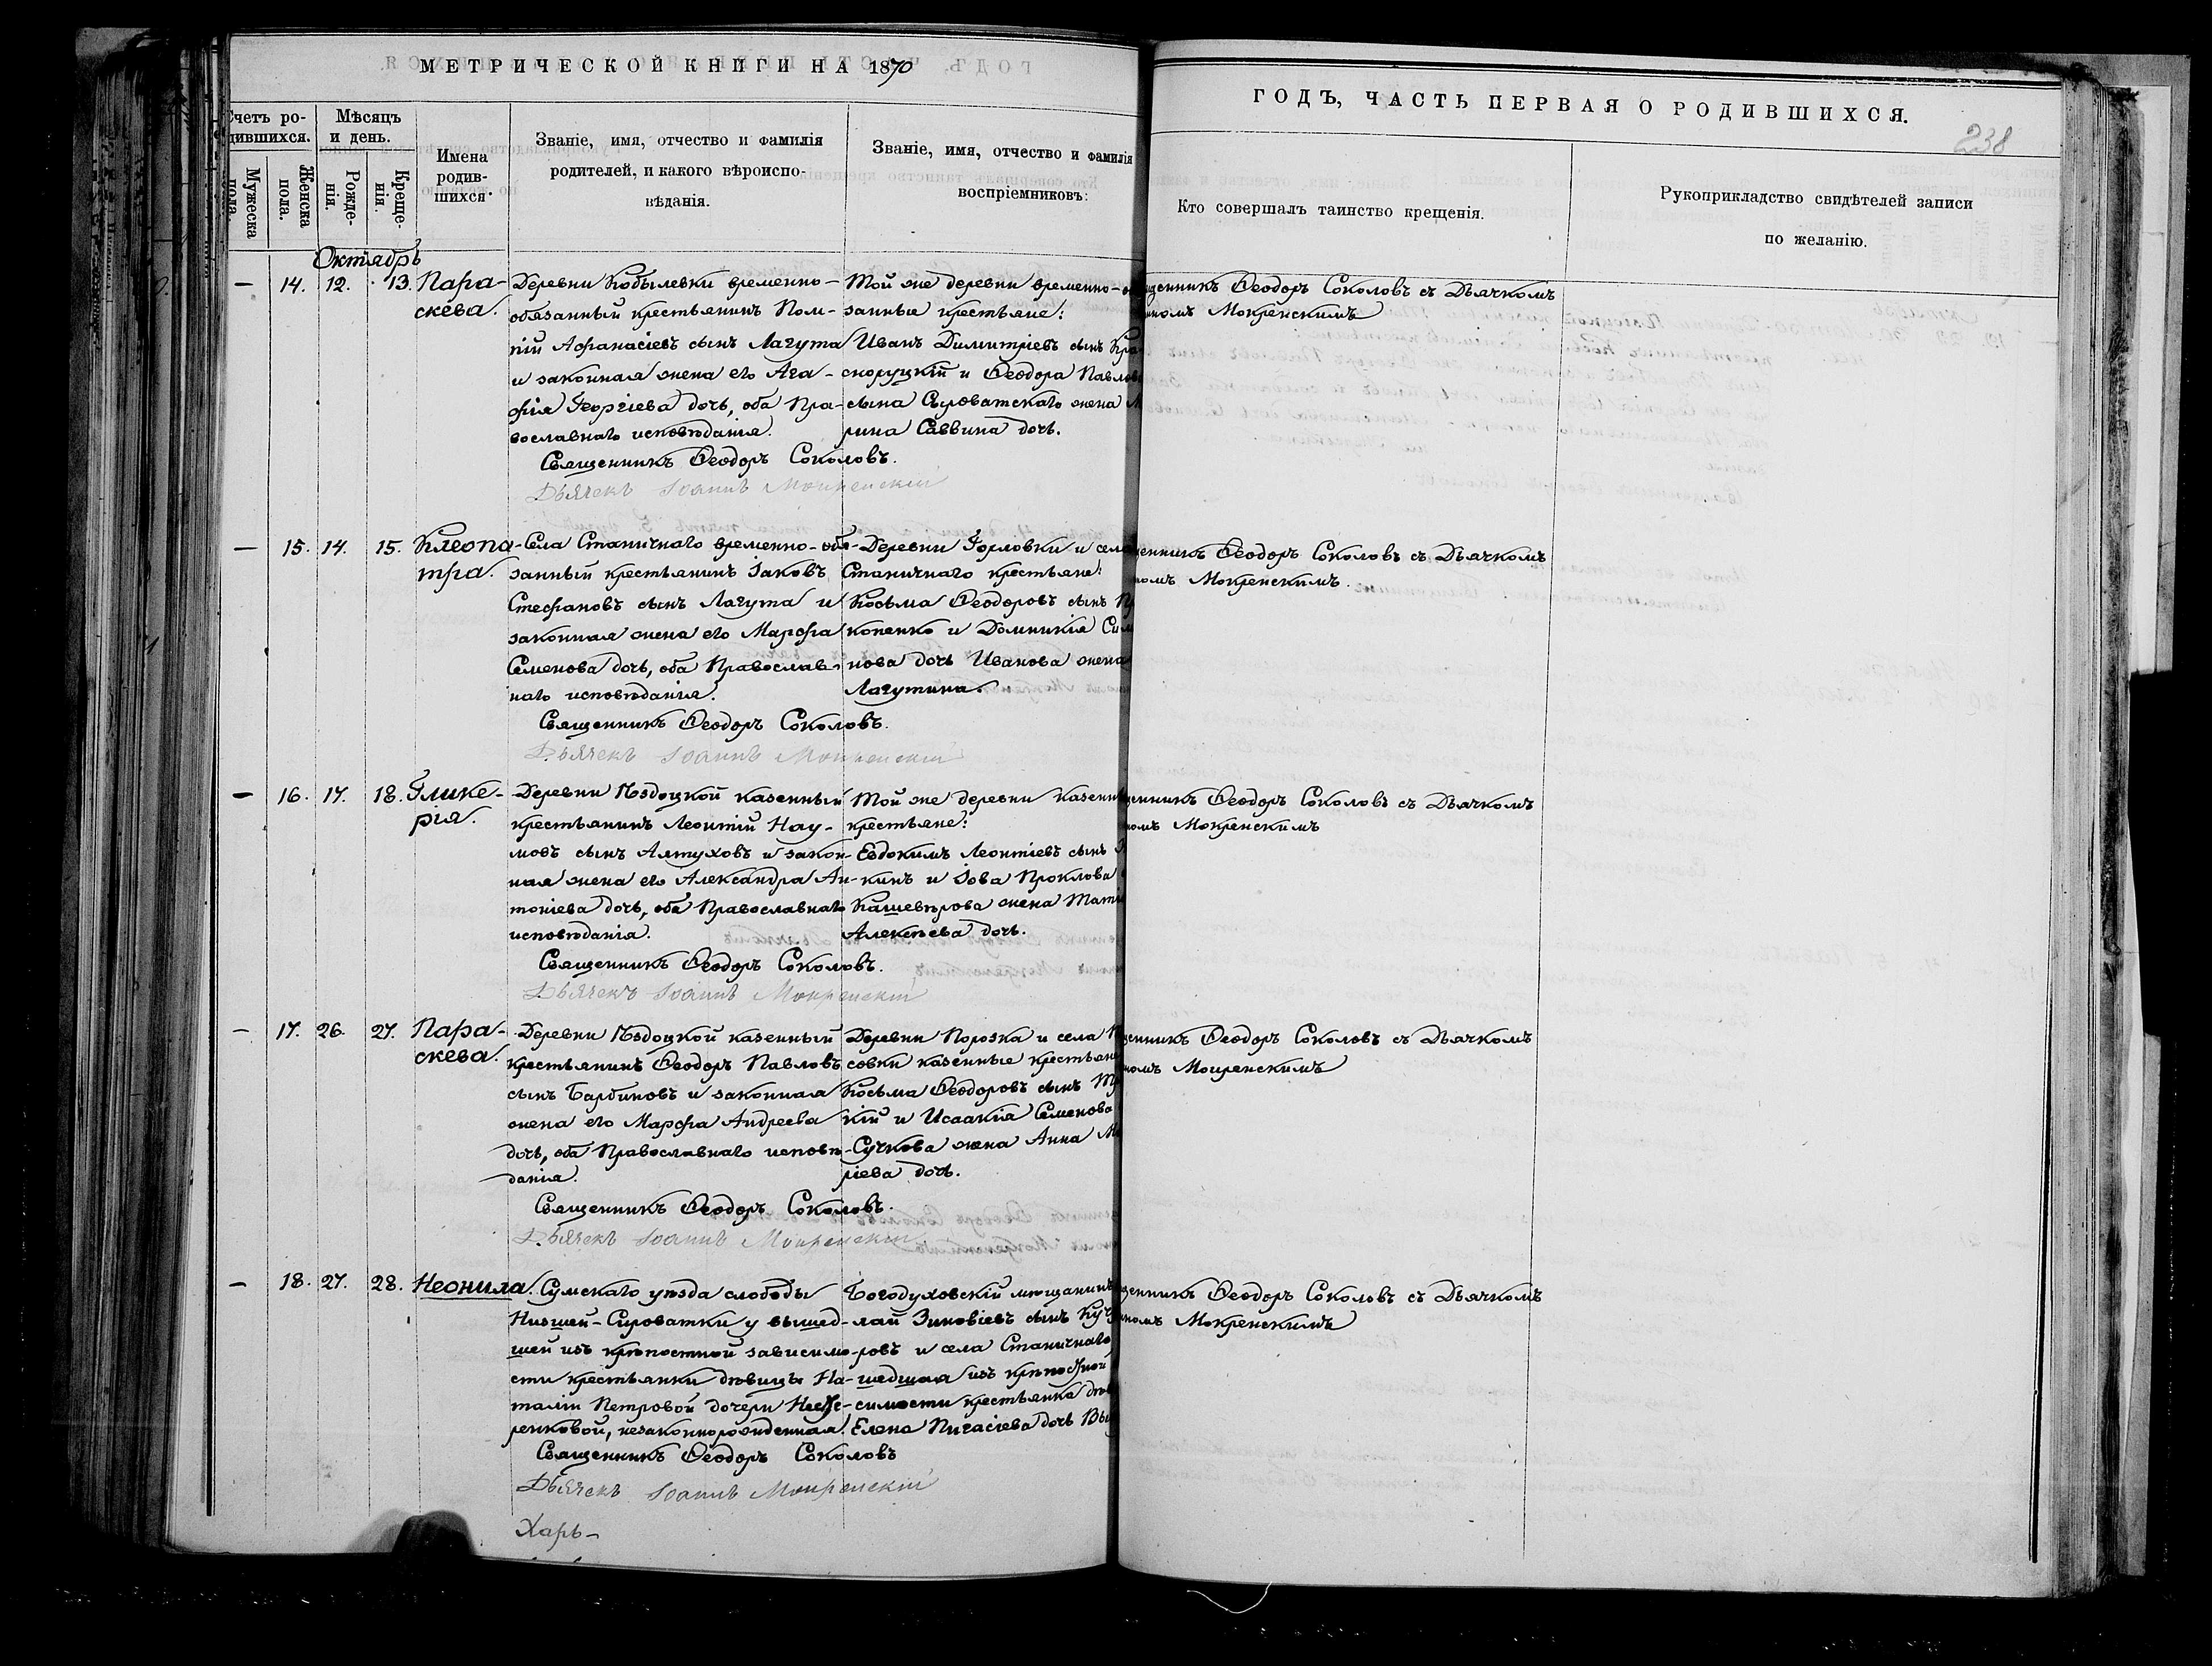 МЕТРИЧЕСКОЙ КНИГИ НА 1870
ГОДЪ, ЧАСТЬ ПЕРВАЯ О РОДИВШИХСЯ.
238
Счетъ ро-
дившихся.
Мужеска
пола.
Женска
пола.
Мѣсяцъ
и день.
Рожде-
нія.
Креще-
нія.
Имена
родив-
шихся.
Званіе, имя, отчество и фамилія
родителей, и какого вѣроиспо-
вѣданія.
Званіе, имя, отчество и фамилія
воспріемниковъ:
Кто совершалъ таинство крещенія.
Рукоприкладство свидѣтелей записи
по желанію.
Октябрь
— 14. 12. 13. Пара-
скева.
Деревни Кобылевки временно-
обязанный крестьянинъ Пом-
пій Аѳанасіевъ сынъ Лагута
и законная жена его Ага-
фія Георгіева дочь, оба Пра-
вославнаго исповѣданія.
Священникъ Ѳеодоръ Соколовъ.
Дьячекъ Іоаннъ Мокренскій
Той же деревни временно-о
занные крестьяне:
Иванъ Димитріевъ сынъ Кра
сноруцкій и Ѳеодора Павлов
сына Сыроватскаго жена М
рина Саввина дочь.
щенникъ Ѳеодоръ Соколовъ съ Дьячкомъ
номъ Мокренскимъ
— 15. 14. 15. Клеопа-
тра.
Села Станичнаго временно-обя-
занный крестьянинъ Іаковъ
Стефановъ сынъ Лагута и
законная жена его Марфа
Семенова дочь, оба Православ-
наго исповѣданія.
Священникъ Ѳеодоръ Соколовъ.
Дьячекъ Іоаннъ Мокренскій
Деревни Горловки и села
Станичнаго крестьяне:
Косьма Ѳеодоровъ сынъ Пр
копенко и Домникія Сим
нова дочь Иванова жена
Лагутина.
щенникъ Ѳеодоръ Соколовъ съ Дьячкомъ
номъ Мокренскимъ.
— 16. 17. 18. Глике-
рія.
Деревни Поздоцкой казенный
крестьянинъ Леонтій Нау-
мовъ сынъ Алтуховъ и закон-
ная жена его Александра Ан-
тоніева дочь, оба Православнаго
исповѣданія.
Священникъ Ѳеодоръ Соколовъ.
Дьячекъ Іоаннъ Мокренскій
Той же деревни казенн
крестьяне:
Евдокимъ Леонтіевъ сынъ
кинъ и Іова Проклова
Кашевѣрова жена Тати
Алексѣева дочь.
щенникъ Ѳеодоръ Соколовъ съ Дьячкомъ
номъ Мокренскимъ
— 17. 26. 27. Пара-
скева.
Деревни Поздоцкой казенный
крестьянинъ Ѳеодоръ Павловъ
сынъ Барбиновъ и законная
жена его Марфа Андреева
дочь, оба Православнаго исповѣ-
данія.
Священникъ Ѳеодоръ Соколовъ.
Дьячекъ Іоаннъ Мокренскій
Деревни Порозка и села
совки казенные крестьяне
Косьма Ѳеодоровъ сынъ
кій и Исаакія Семенова
Сучкова жена Анна
ріева дочь.
щенникъ Ѳеодоръ Соколовъ съ Дьячкомъ
номъ Мокренскимъ
— 18. 27. 28. Неонила.
Сумскаго уѣзда слободы
Низшей-Сироватки у вышед-
шей изъ крѣпостной зависимо-
сти крестьянки дѣвицы На-
таліи Петровой дочери
ренковой, незаконнорожденная.
Священникъ Ѳеодоръ Соколовъ
Дьячекъ Іоаннъ Мокренскій
Богодуховскій мѣщанинъ
лай Зиновіевъ сынъ Куч
ровъ и села Станичнаго
шедшая изъ крѣпостной
симости крестьянка дѣв
Елена Пигасіева дочь Вы
щенникъ Ѳеодоръ Соколовъ съ Дьячкомъ
номъ Мокренскимъ
Харь-